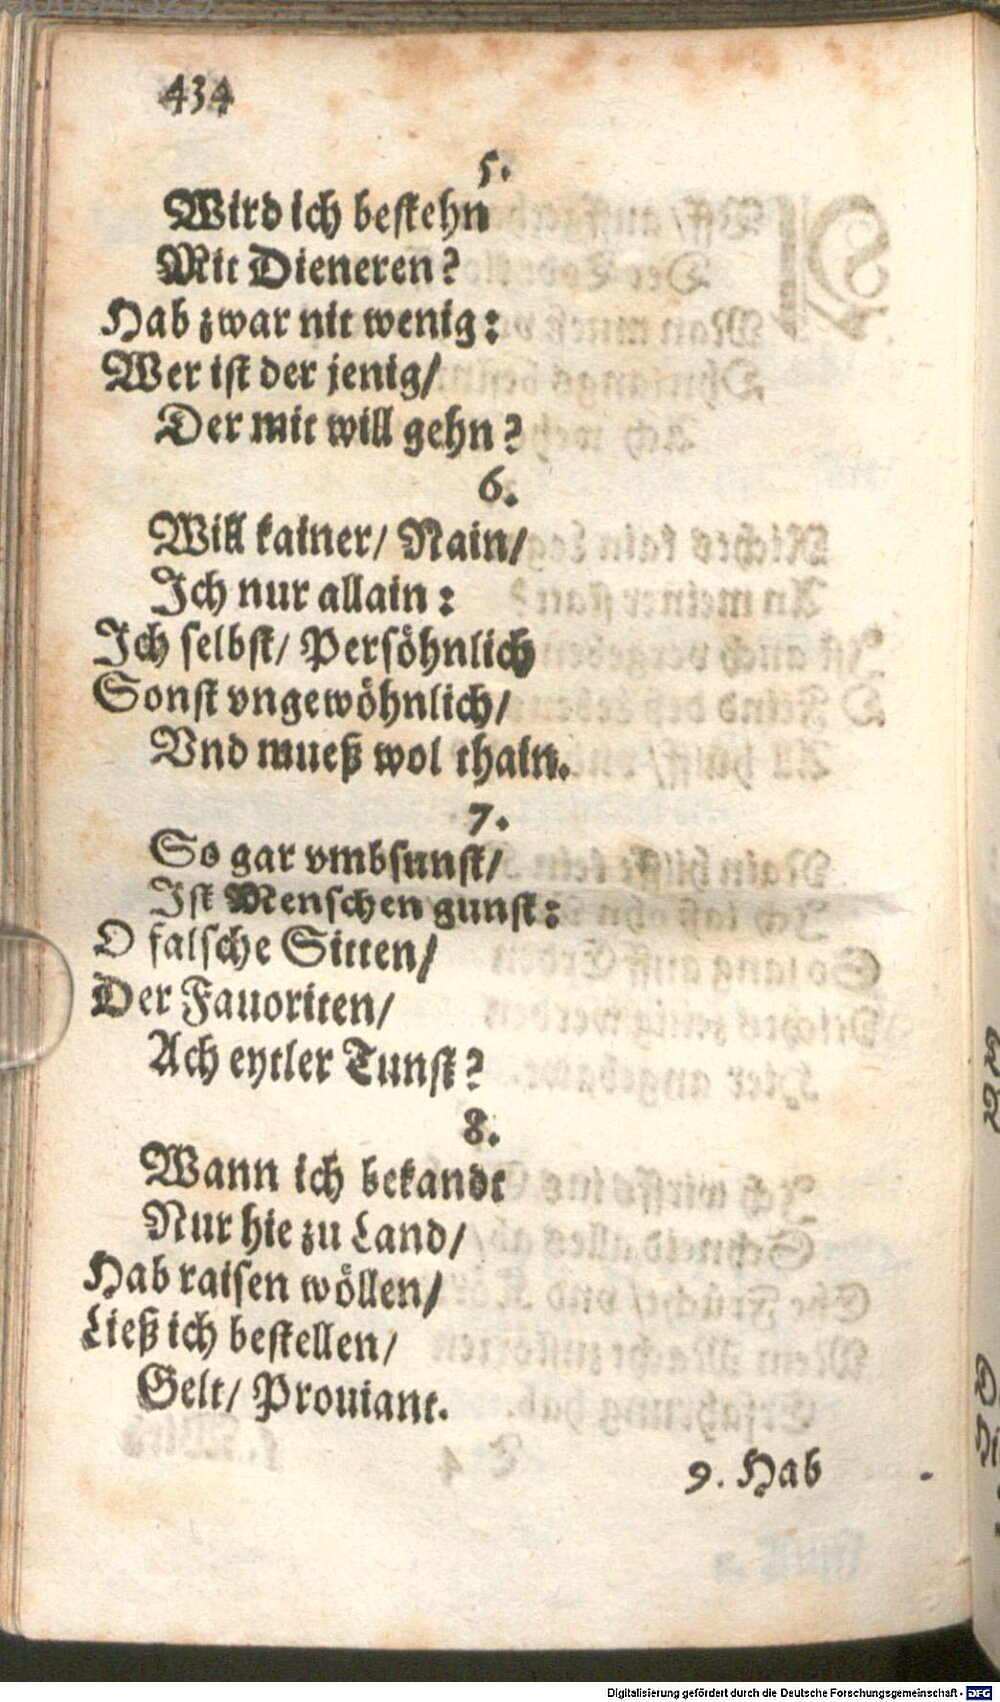 434
5.
Wird ich bestehn
Mit Dieneren?
Hab zwar nit wenig:
Wer ist der jenig/
Der mit will gehn?
6.
Will kainer/ Nain/
Ich nur allain:
Ich selbst/ Persöhnlich
Sonst vngewöhnlich/
Vnd mueß wol thain.
7.
So gar vmbsunst/
Ist Menschen gunst:
O falsche Sitten/
Der Fauoriten/
Ach eytler Tunst?
8.
Wann ich bekandt
Nur hie zu Land/
Hab raisen wöllen/
Ließ ich bestellen/
Gelt/ Prouiant.
9. Hab
Digitalisierung gefördert durch die Deutsche Forschungsgemeinschaft - DFG